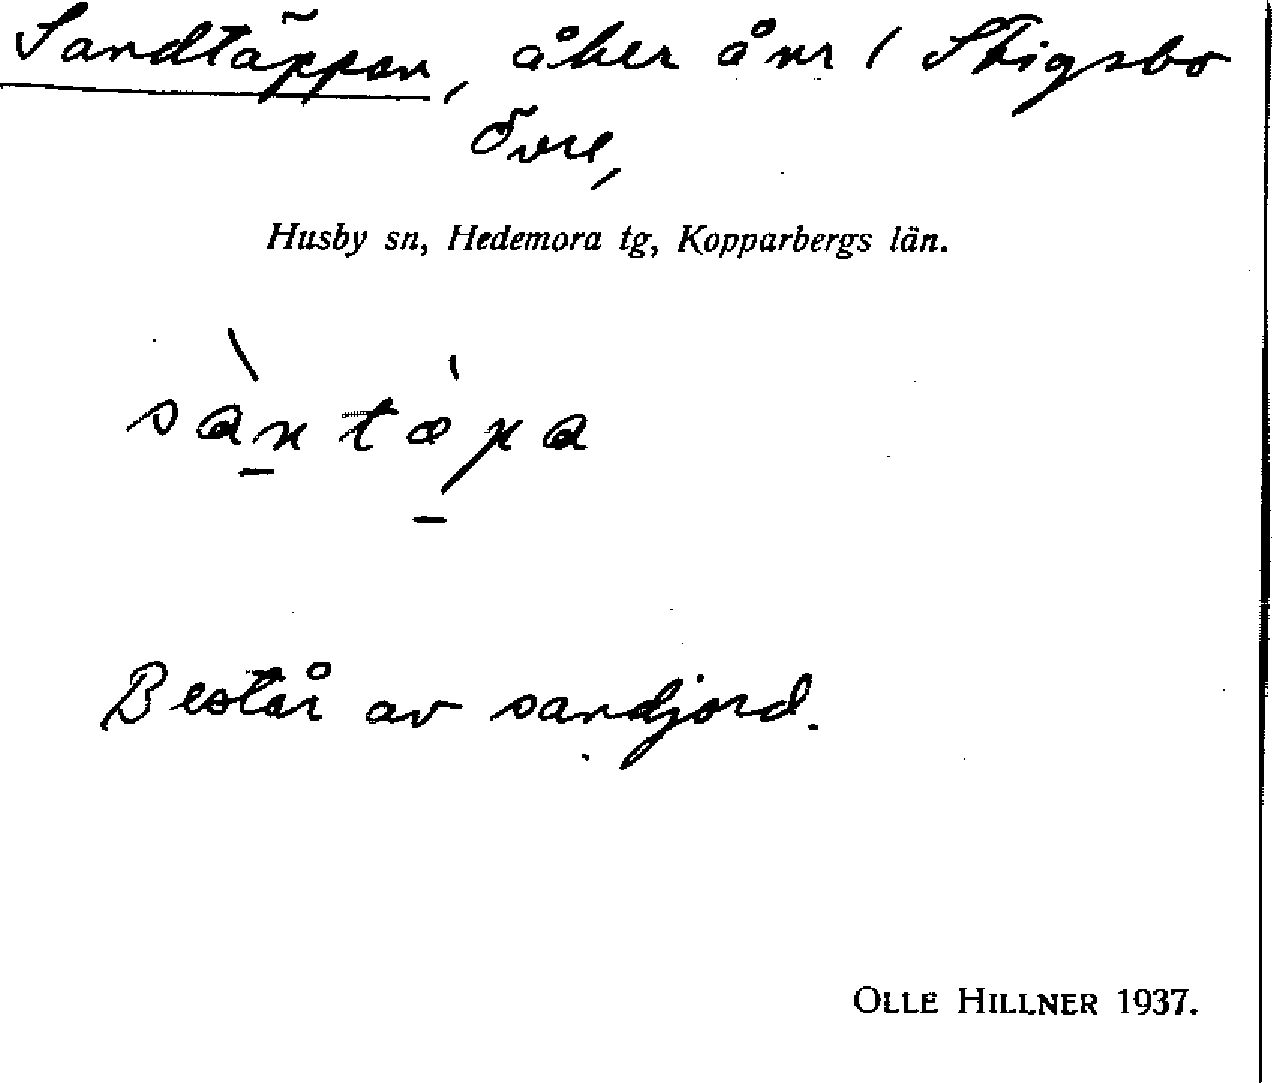 Sandtäppan, åker å nr 1 Stigsbo
Övre,
Husby sn, Hedemora tg, Kopparbergs län.
sàn̲tæ̀p̲a
Består av sandjord.
OLLE HILLNER 1937.